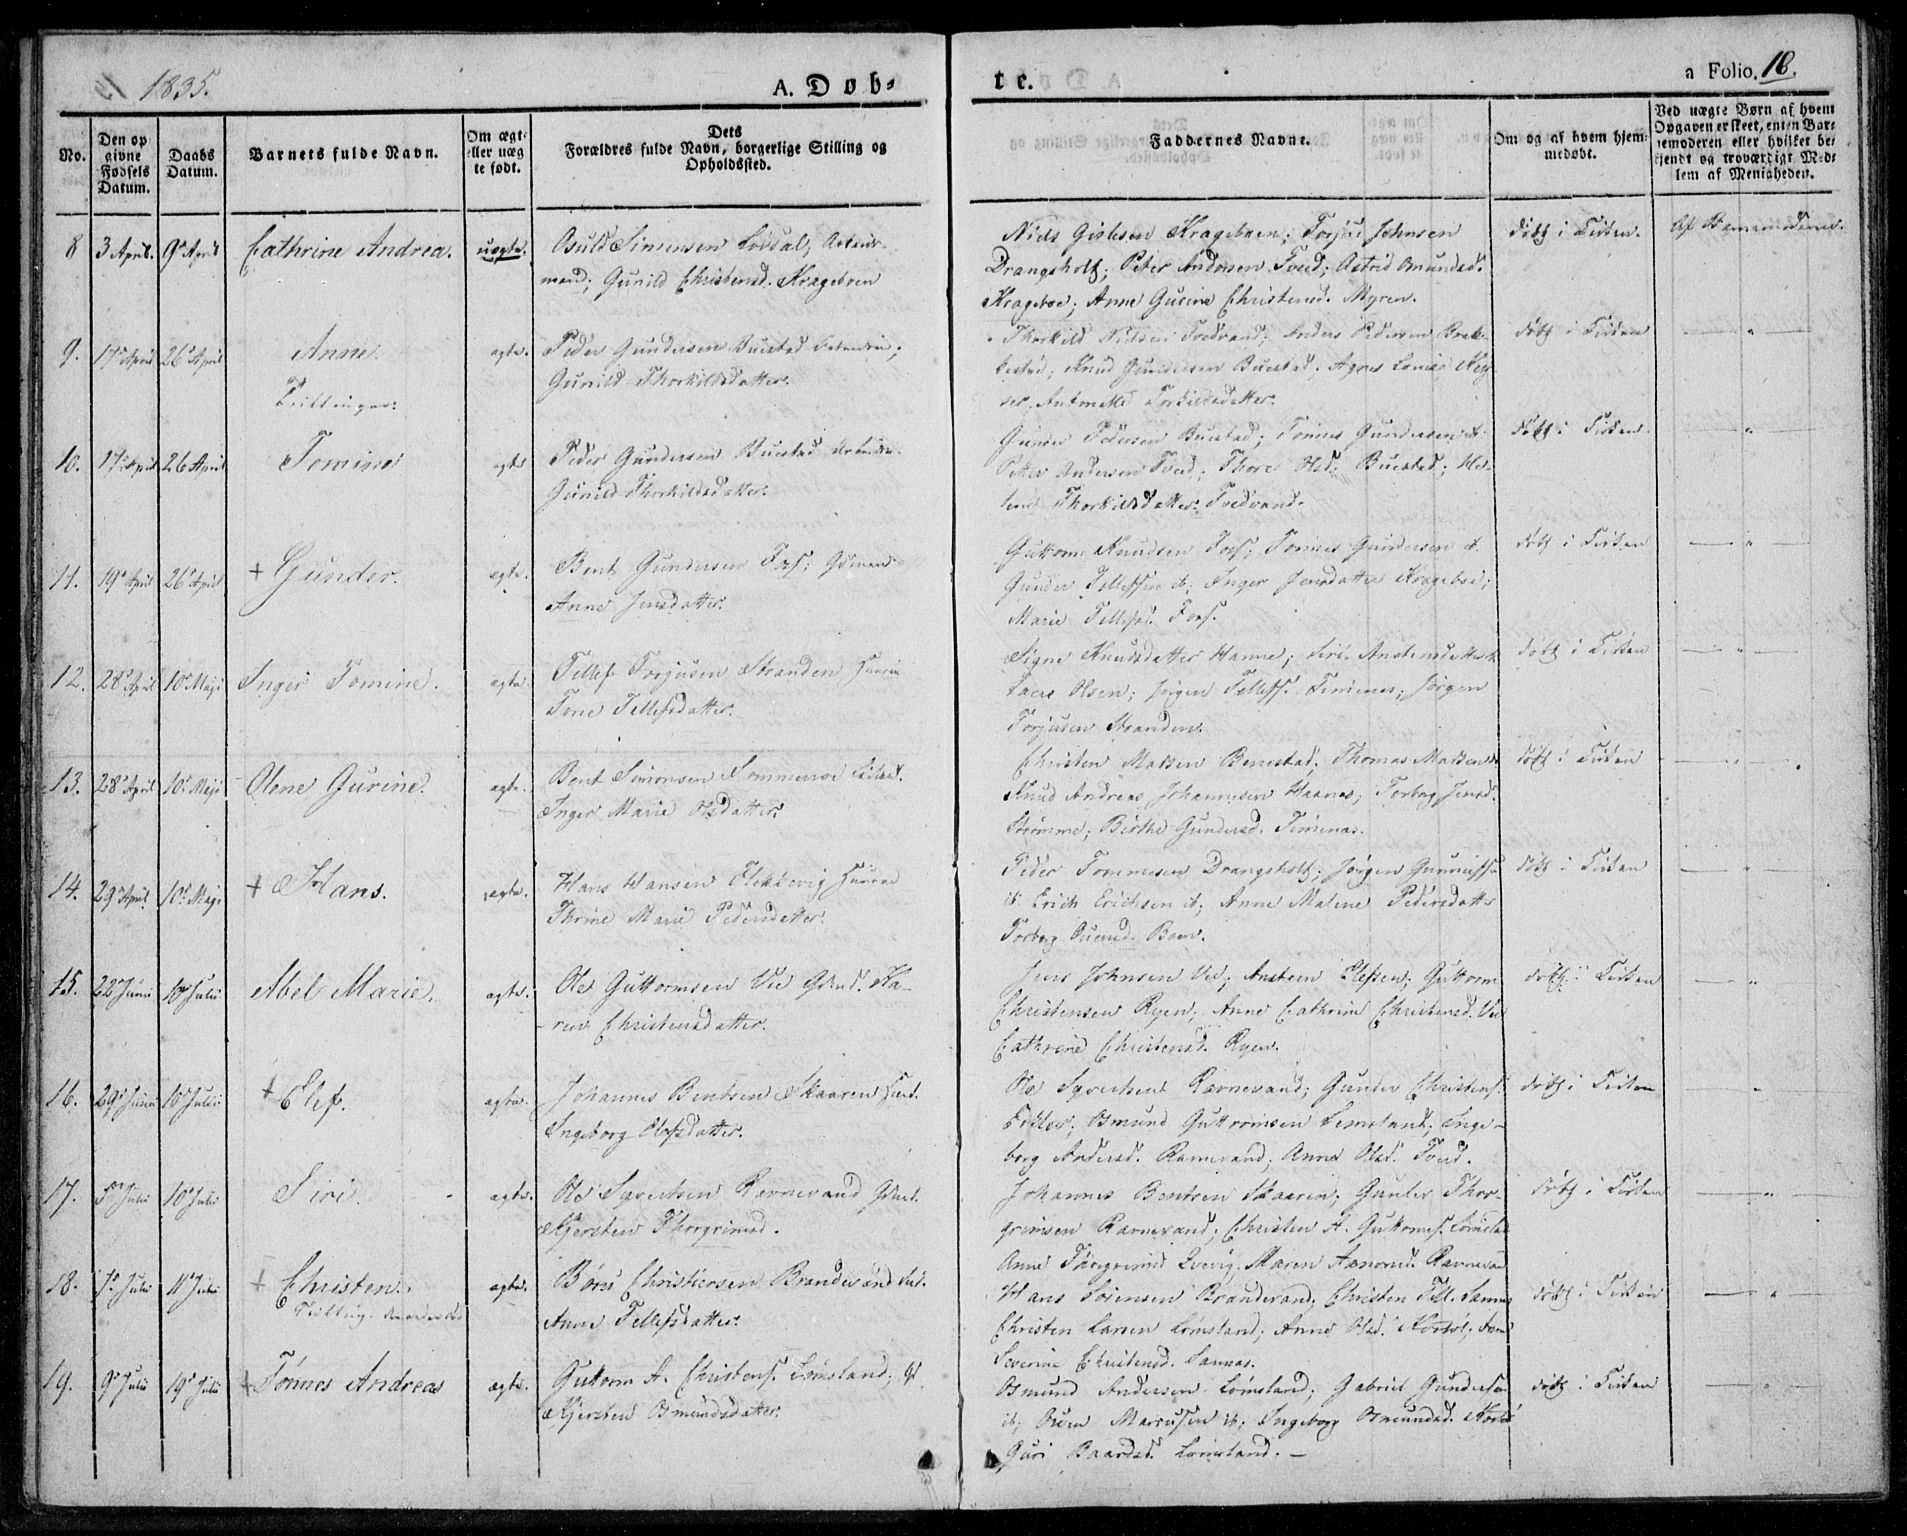 1835.
A. Døb-
te.
a Folio. 18.
No.
Den op
givne
Fødsels
Datum.
Daabs
Datum.
Barnets fulde Navn.
Om ægt
eller uæg
te født.
Dets
Forældres fulde Navn, borgerlige Stilling og
Opholdssted.
Faddernes Navne.
Om og af hvem hjem-
medøbt.
Ved uægte Børn af hvem
Opgaven er skeet, enten Bar-
nemoderen eller hvilket be-
kjendt og troværdigt Med-
lem af Menigheden.
8 3 April. 9 April Cathrine Andrea. uægte.
Osuld Simensen Lovdal, Arbeids-
mand; Gunild Christensd. Krageboen
Niels Gislesen Krageboen; Torjus Johnsen
Drangsholt; Peter Andersen Tved; Astrid Omundsd.
Krageboe; Anne Gurine Christensd. Myren.
døbt i Kirken.
Af Barnemoderen.
9. 17 April 26 April Anne ægte.
Tvillinger.
Peder Gundersen Buestad
Gunild Thorkildsdatter.
Thorkild Nielsen Tvedvand; Anders Pedersen
Knud Gundersen Buestad; Agnes Lovise
Antonette Torkildsdatter.
døbt i Kirken
10. 17 April 26 April Tomine ægte
Peder Gundersen Buestad
Gunild Thorkildsdatter.
Gunder Pedersen Buestad; Tønnes Gundersen ib.
Peter Andersen Tved; Thore Olsd. Buestad; He-
lene Thorkildsdatter Tvedvand.
døbt i Kirken
11. 19 April 26 April + Gunder. ægte.
Bent Gundersen Foss; Gdmand
Anne Jensdatter.
Guttorm Knudsen Foss; Tønnes Gundersen ib.
Gunder Tellefsen ib; Inger Jensdatter Krageboe;
Marie Tellefsd. Foss.
døbt i Kirken
12. 28 April 10 Maji Inger Tomine. ægte.
Tellef Torjusen Stranden
Tone Tellefsdatter.
Signe Knudsdatter Hanne; Siri
Lars Olsen; Jørgen Tellefs. Timenes; Jørgen
Torjusen Stranden.
døbt i Kirken
13. 28 April 10 Maji Olene Gurine. ægte.
Bent Simonsen Sommeroe
Inger Marie Olsdatter.
Christen Madsen Benestad; Thomas Madsen ib
Knud Andreas Johannesen Haanes; Torborg Jensd.
Strømme; Birthe Gundersd. Timenes.
døbt i Kirken
14. 29 April 10 Maji + Hans. ægte.
Hans Hansen Flekkevig
Thrine Marie Pedersdatter.
Peder Tommesen Drangsholt; Jørgen
ib. Erich Erichsen ib; Anne Malene Pedersdatter
Torborg Boen.
døbt i Kirken
15. 22 Junii 10 Julii Abel Marie. ægte.
Ole Guttormsen Vee Gdmd. Ka-
ren Christensdatter.
Jens Johnsen Vee; Anstein Elefsen; Guttorm
Christensen Ryen; Anne Cathrine Christensd. Vee
Cathrine Christensd. Ryen.
døbt i Kirken
16. 29 Junii 10 Julii + Elef. ægte.
Johannes Bentsen Skaaren
Ingeborg Elefsdatter.
Ole Syvertsen Ravnevand; Gunder Christens.
Osmund Guttormsen Lømsland; Inge-
borg Andersd. Ravnevand; Anne Olsd. Tved.
døbt i Kirken
17. 5 Julii 10 Julii Siri. ægte.
Ole Syvertsen Ravnevand Gdmd.
Kjersten Thorgrimsd.
Johannes Bentsen Skaaren; Gunder Thor-
grimsen Ravnevand; Christen A. Guttorms. Lømsland
Anne Torgrimsd Maren Aanonsd. Ravnevan
døbt i Kirken
18. 7 Julii 11 Julii + Christen. ægte.
Tvilling.
Børe Christensen Brandevand
Anne Tellefsdatter.
Hans Sørensen Brandevand; Christen Tell. Sannes
Christen Larsen Lømsland; Anne Olsd.
Severine Christensd. Sannæs.
døbt i Kirken
19. 9 Julii 19 Julii + Tønnes Andreas ægte.
Guttorm A. Christens. Lømsland;
Kjersten Osmundsdatter.
Osmund Andersen Lømsland; Gabriel Gundersen
ib; Markusen ib; Ingeborg Osmundsd.
Guri Baardsd. Lømsland. –
døbt i Kirken